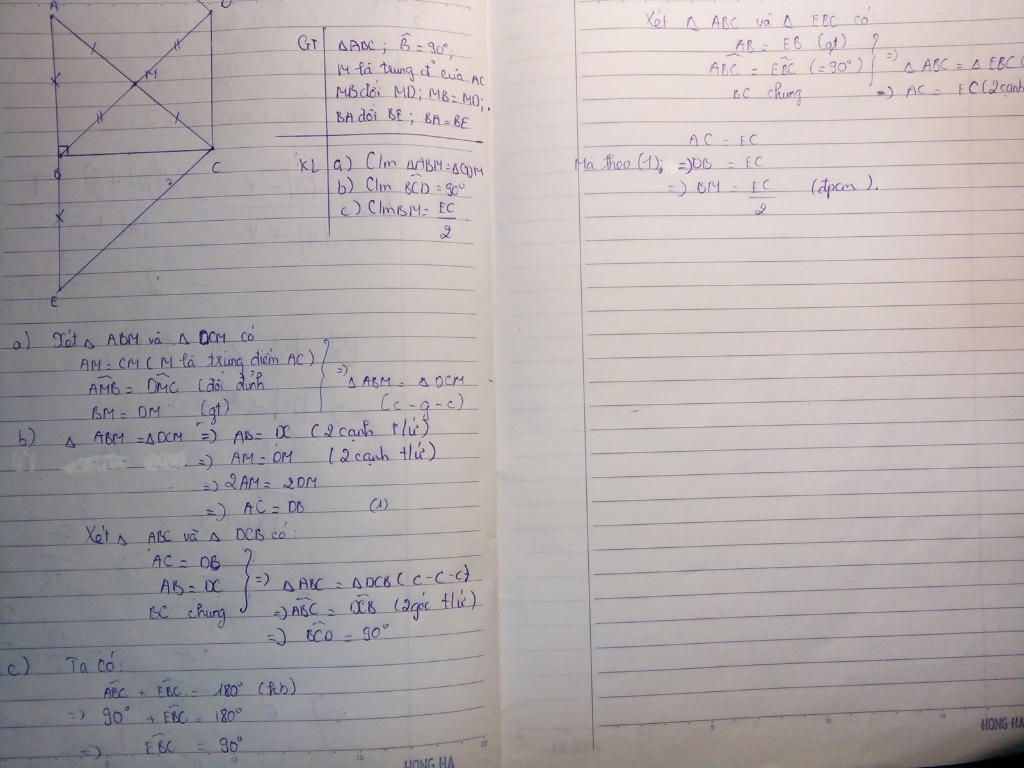 A
D
M
B
C
E
GT
ΔABC ; B̂ = 90°,
M là trung đ' của AC
MB đối MD ; MB = MD ;
BA đối BE ; BA = BE
KL
a) C/m ΔABM = ΔCDM
b) C/m BĈD = 90°
c) C/m BM = EC/2
a) Xét Δ ABM và Δ DCM có
AM = CM ( M là trung điểm AC )
AMB = DMC (đối đỉnh
BM = DM (gt)
=> Δ ABM = Δ DCM
(c - g - c)
b) Δ ABM = Δ DCM => AB = DC ( 2 cạnh t/ứ )
=> AM = DM ( 2 cạnh t/ứ )
=> 2AM = 2DM
=> AC = DB (1)
Xét Δ ABC và Δ DCB có :
AC = DB
AB = DC
BC chung
=> Δ ABC = Δ DCB ( c - c - c )
=> ABC = DCB ( 2 góc t/ứ )
=> BCD = 90°
c) Ta có :
ABC + EBC = 180° (kb)
=> 90° + EBC = 180°
=> EBC = 90°
HONG HA
Xét Δ ABC và Δ EBC có :
AB = EB (gt)
ABC = EBC (= 90°)
BC chung
=> Δ ABC = Δ EBC (
=> AC = EC ( 2 cạnh
AC = EC
Mà theo (1) ; => DB = EC
=> BM = EC/2 (đpcm).
HONG HA